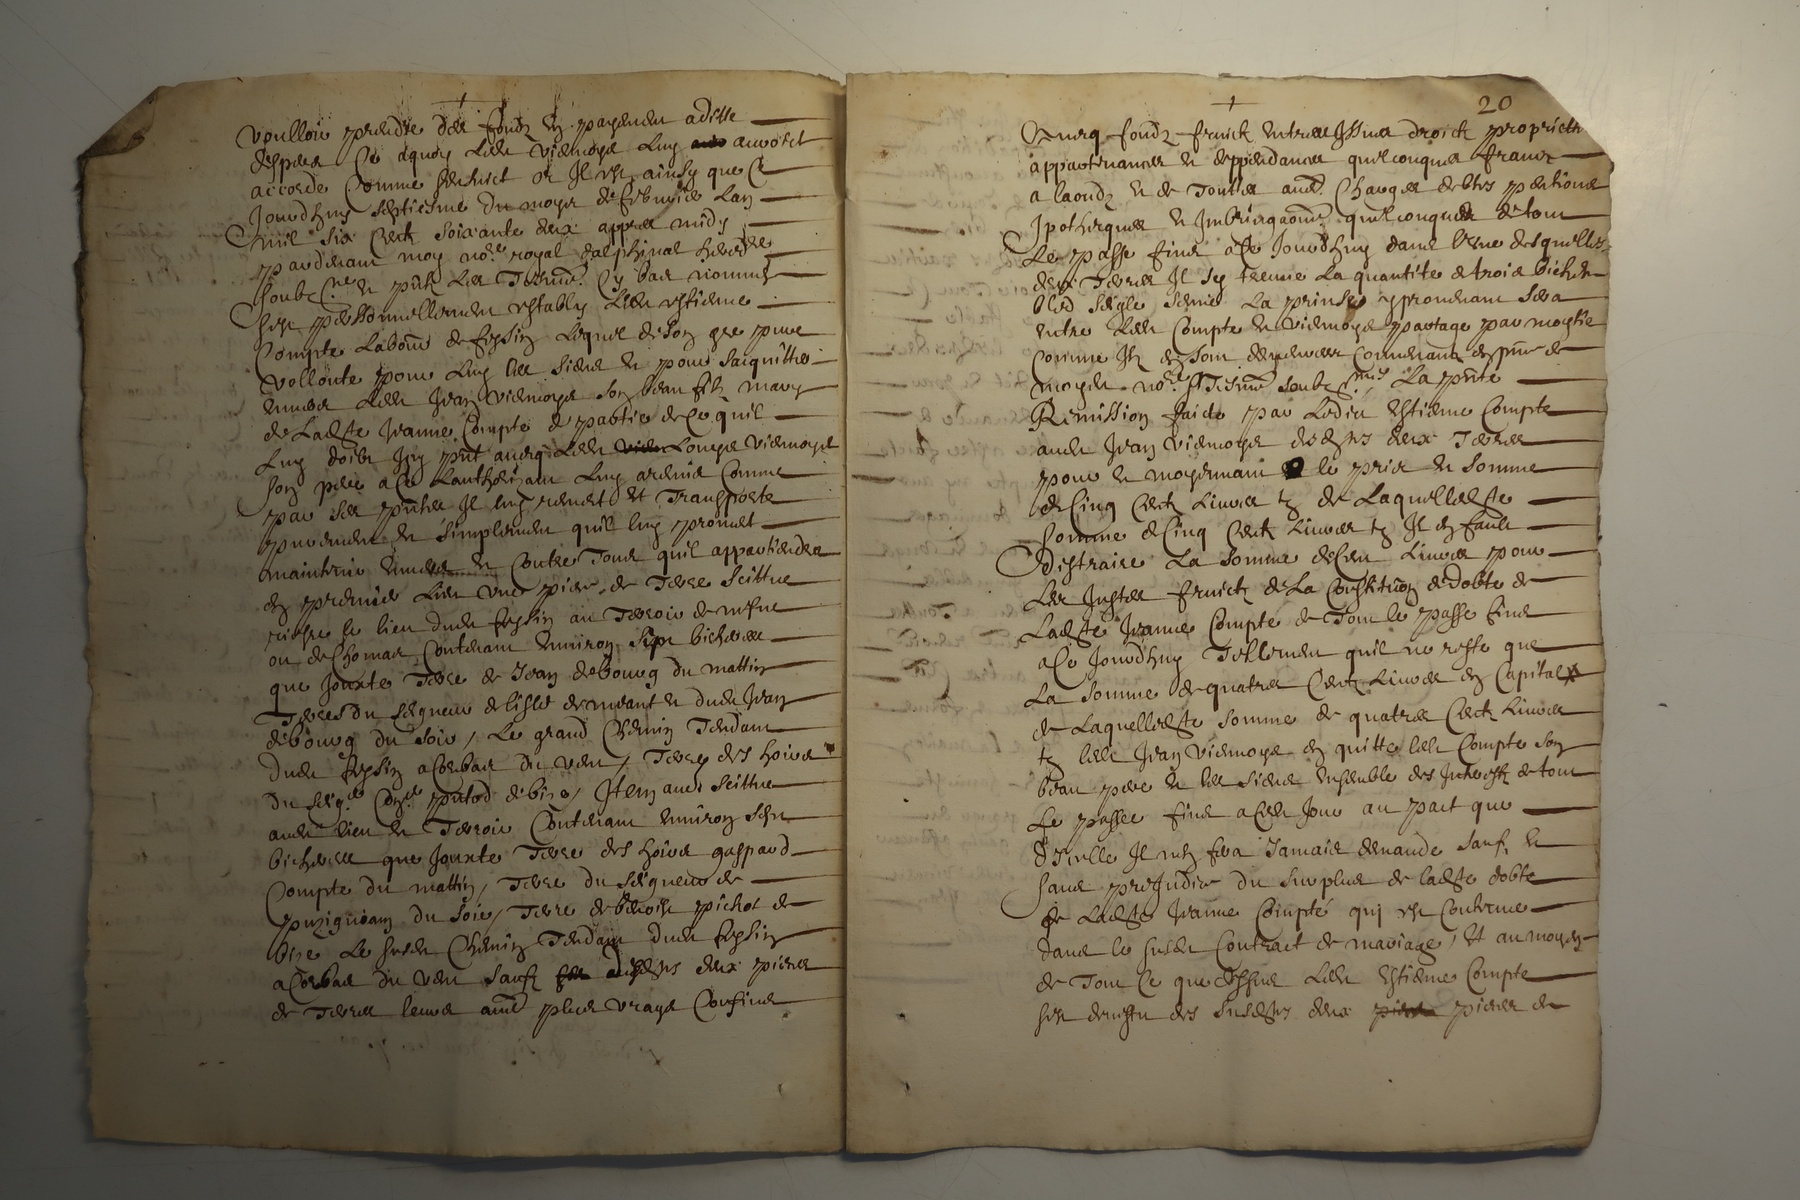 voulloir prendre des fondz en payement aditte
despuis Ce aquoy Led vidmoye Luy auroict
accorde Comme sensuict or Il est ainsy que Ce
Jourdhuy septiesme du moys de febvrier Lan
mil six Centz soixante deux appres midy
pardevant moy no.re royal dalphinal hered.re
soubz.ne & pntz Les Tesmo. Cy bas nommes
sest personnellement estably Led estienne
Compte Labour de feysin Lequel de son gre pure
vollonte pour Luy les siens et pour sacquitter
envers Led Jean vidmoye son beau filz mary
de Ladte Jeanne Compte de partie de Ce quil
Luy doibt Jcy pnt avecq Led Louys vidmoye
son pere a Ce Lauthorizant Luy a remis Comme
par Ses pntes Il luy remet et Transporte
purement et simplement quil luy promet
maintenir envers et Contre Tous quil appartiendra
en premier Lieu une piece de Terre scittue
riesre le lieu dud feysin au Terroir de
ou de Chomas Contenant environ sept bicheree
que Jouxte Terre de Jean debourg du mattin
Terres du seigneur de lisle de
debourg du soir / Le grand Chemin Tendant
dud feysin a Corbas du vent / Terre des hoirs
du seig.r Con.er putod de bize / Item aud scittue
aud lieu et Terroir Contenant environ sept
bicheree que Jouxte Terre des hoirs gaspard
Compte du mattin / Terre du seigneur de
puzignan du soir / Terre de benoist pichot de
bize Le susd Chemin Tendant dud feysin
a Corbas du vent sauf desdtes deux pieces
de Terre leurs aues plus vrays Confins
20
Avecq fondz fruictz entrees Issues droictz proprietes
appartenances et deppendances quelconques francz
a laoudz et de Touttes aues Charges debtes pentions
Ipotheques et Imbriegaones quelconques de tout
Le passe fins a Ce Jourdhuy dans lune desquelles
deux Terres Il sy treuve La quantite de trois bichetz
bled seigle seme La prinse y provenant sera
entre Led Compte et vidmoye partage par moytie
Comme Ilz en sont demeures Convenant en pnce de
moyd no.re & Tesmo soubz.nes La pnte
Remission faicte par Ledict Estienne Compte
aud Jean vidmoye desdtes deux Terres
pour et moyennant le pris et somme
de Cinq Centz Livres tz de Laquelle dte
somme de Cinq Centz Livres tz Il en fault
distraire La somme de Cent Livres pour
Les Justes fruictz de La Constituon de dobte de
Ladte Jeanne Compte de Tout le passe fins
a Ce Jourdhuy Tellement quil ne reste que
La somme de quatre Centz Livres en Capital
de Laquelle dte somme de quatre Centz Livres
tz led Jean vidmoye en quitte led Compte son
beau pere et les siens ensemble des Interestz de tout
Le passee fins a Ced Jour au pact que
dicelle Il nen fera Jamais demande sauf et
sans prejudice du surplus de ladte dobte
de Ladte Jeanne Compte qui est Contenue
dans le susd Contract de mariage / et au moyen
de Tout Ce que dessus Led Estienne Compte
sest desvestu des susdtes deux pieces de